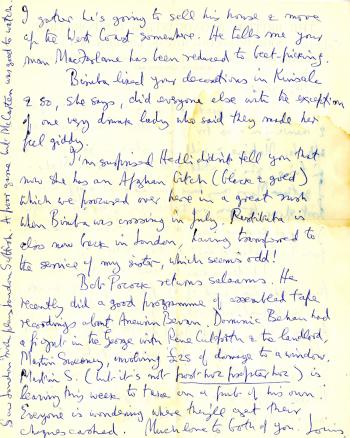 I gather he's going to sell his house & move
up the West Coast somewhere. He tells me your
man MacFarlane has been reduced to beet-picking.
Bimba liked your decorations in Kinsale
& so, she says, did everyone else with the exception
of one very drunk lady who said they made her
feel giddy.
I'm surprised Hedli didn't tell you that
now she has an Afghan bitch (black & gold)
which we procured over here in a great rush
when Bimba was crossing in July.
also now back in London, having transferred to
the service of my sister, which seems odd!
Bob Pocock returns salaams. He
recently did a good programme of assembled tape
recordings about Aneurin Bevan. Dominic Behan had
a fight in the George with Rene Cutforth & the landlord,
Martin Sweeney, involving £25 of damage to a window.
Martin S. (but it's not post-hoc propter hoc) is
leaving this week to take on a pub of his own.
Everyone is wondering where they'll get their
cheques cashed. Much love to both of you. Louis
Saw London Irish London Scottish. A poor game but McCracken was good to watch